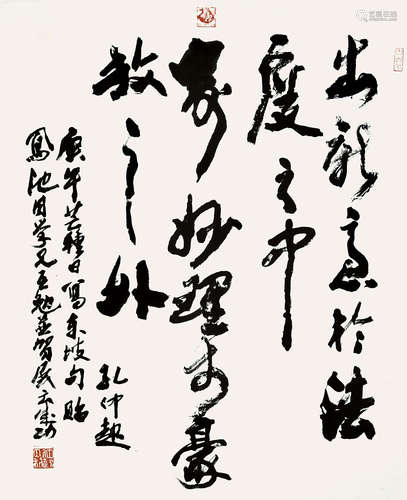 出新意於法
度之中
寄妙理於豪
放之外
庚午芒種日寫東坡句貽
鳳池同学兄互勉並賀展示成功
孔仲起